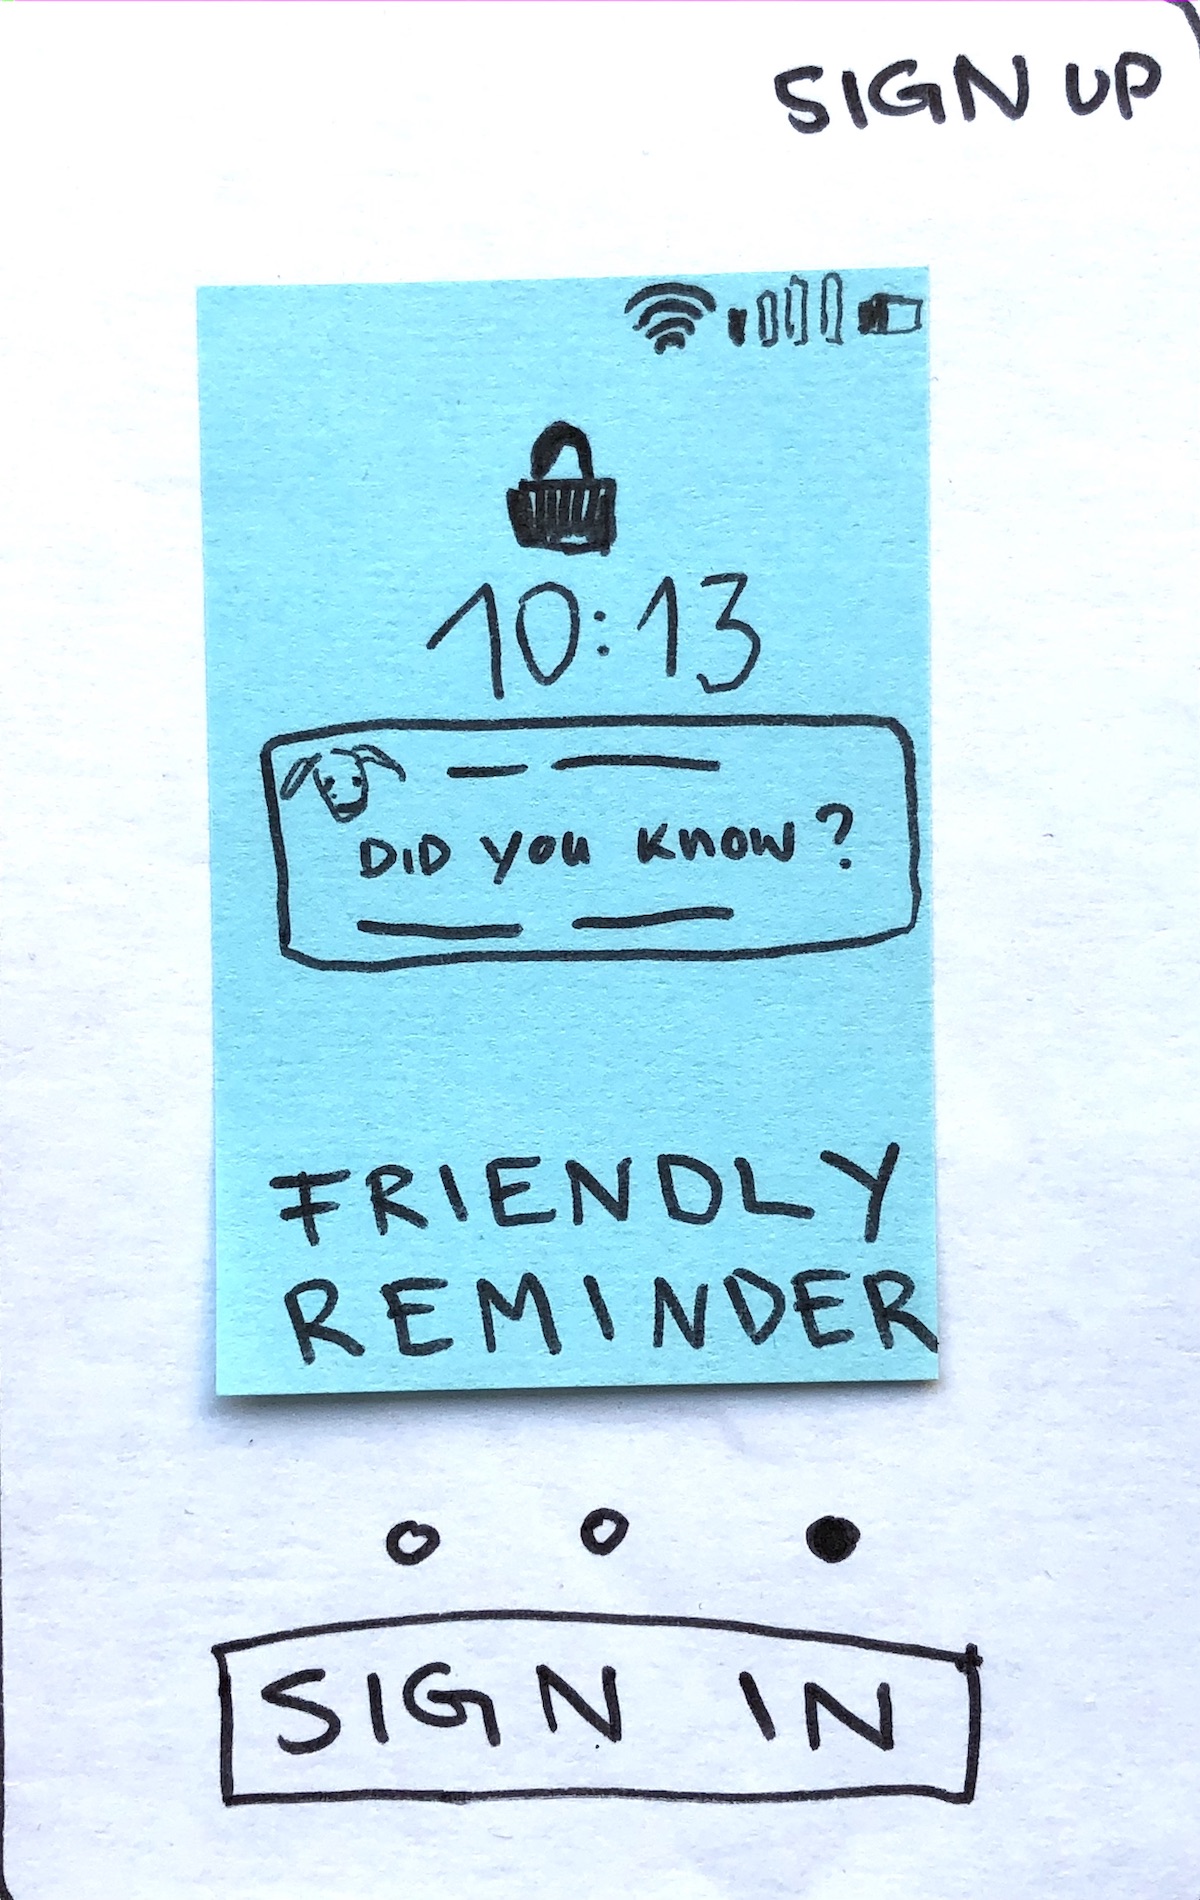 SIGN UP
10:13
DID you know?
FRIENDLY
REMINDER
SIGN IN